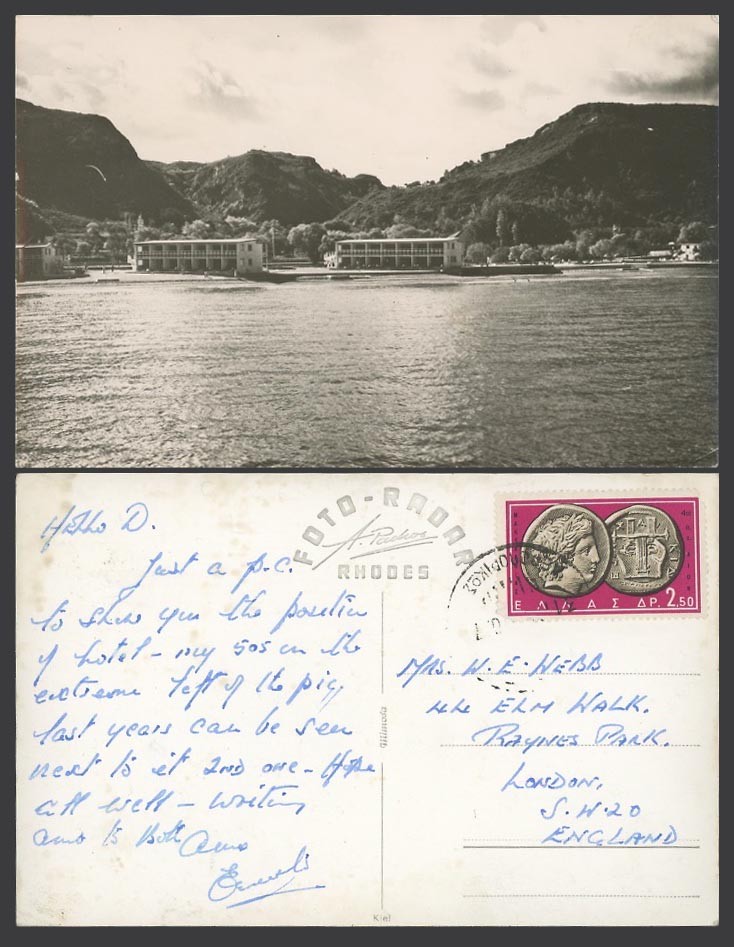 Hello D.
Just a p.c.
to show you the position
of hotel - my 505 on the
extreme left of the pic,
last years can be seen
next to it 2nd one - Hope
all well - writing
Amo to Both Amo
FOTO-RADAR
RHODES
Mimosa
Kiel
ΕΛΛΑΣ ΔΡ. 2.50
MRS. W. E. WEBB
44 ELM WALK.
RAYNES PARK.
LONDON,
S.W.20
ENGLAND